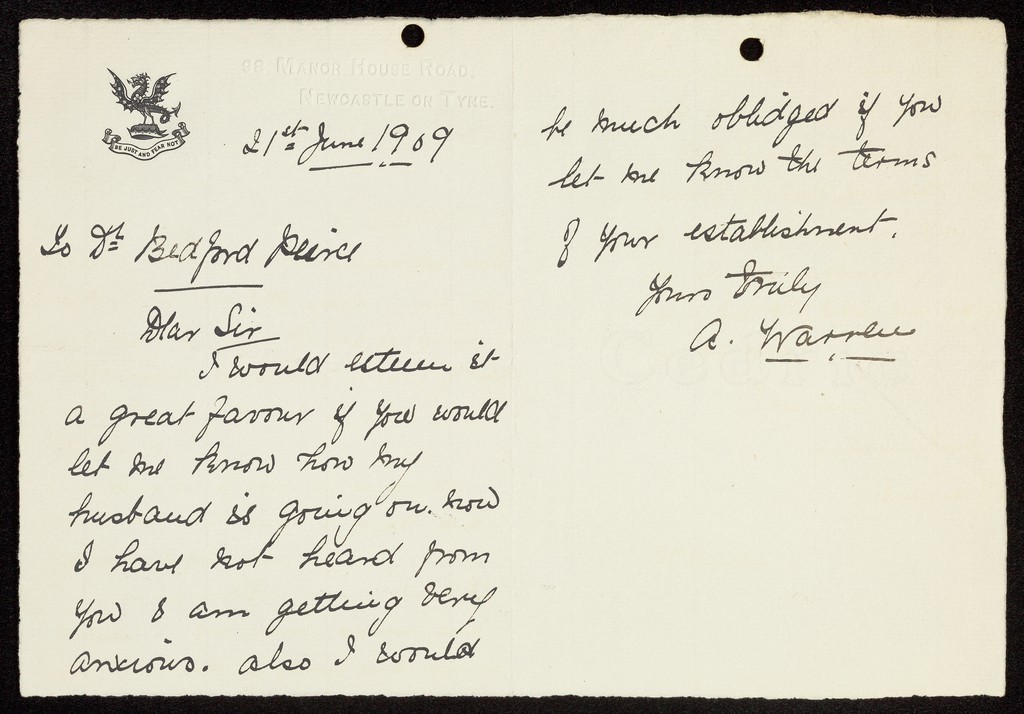 98 MANOR HOUSE ROAD,
NEWCASTLE ON TYNE.
BE JUST AND FEAR NOT
21st June 1909
To Dr Bedford Peirce
Dear Sir
I would esteem it
a great favour if you would
let me know how my
husband is going on. now
I have not heard from
you & am getting very
anxious. also I would
be much oblidged if you
let me know the terms
of your establishment.
Yours truly
A. Warren